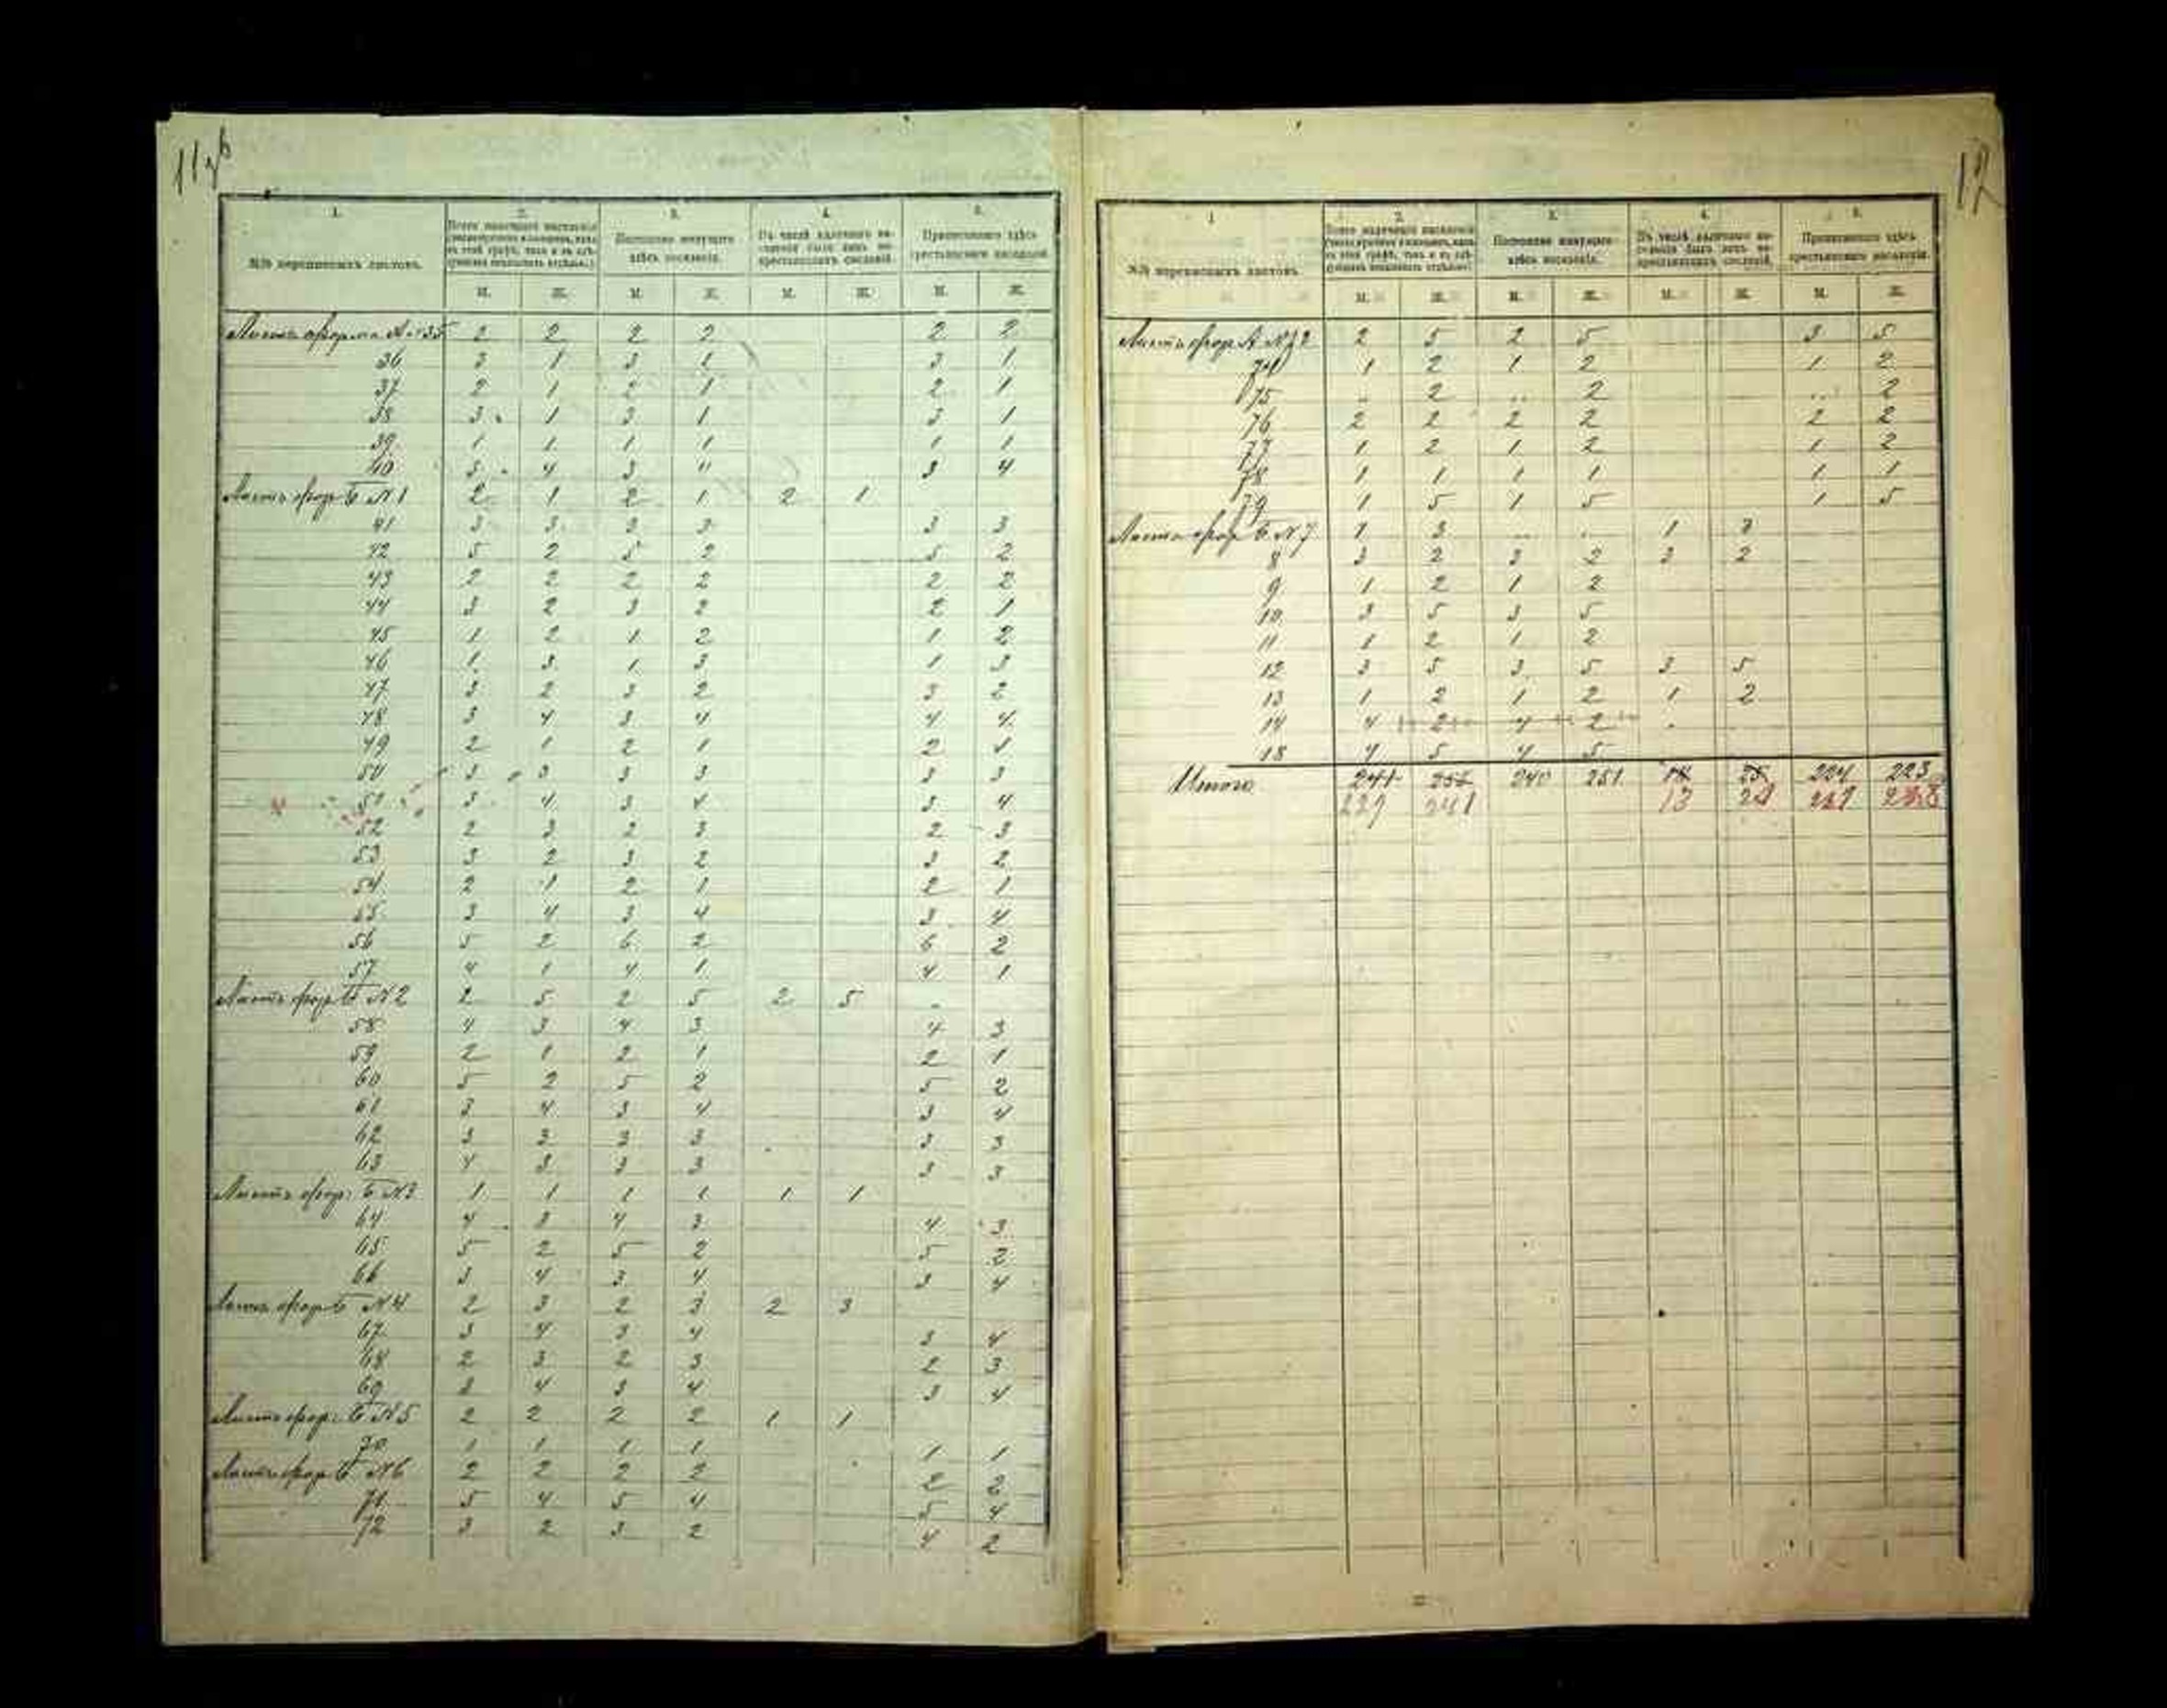 12
1. 2. 3. 4. 5.
№№ переписныхъ листовъ.
Всего наличнаго населенія
Постоянно живущаго здѣсь населенія.
Въ числѣ наличнаго населенія было лицъ не крестьянскихъ сословій.
Приписаннаго здѣсь крестьянскаго населенія.
М. Ж. М. Ж. М. Ж. М. Ж.
Листъ форма А № 35 2 2 2 2 2 2
36 3 1 3 1 3 1
37 2 1 2 1 2 1
38 3 1 3 1 3 1
39 1 1 1 1 1 1
40 3 4 3 " 3 4
Листъ фор Б № 1 2 1 2 1 2 1
41 3 3 3 3 3 3
42 5 2 5 2 5 2
43 2 2 2 2 2 2
44 3 2 3 2 2 1
45 1 2 1 2 1 2
46 1 3 1 3 1 3
47 3 2 3 2 3 2
48 3 4 3 4 4 4
49 2 1 2 1 2 1
50 3 3 3 3 3 3
51 3 4 3 4 3 4
52 2 3 2 3 2 3
53 3 2 3 2 3 2
54 2 1 2 1 2 1
55 3 4 3 4 3 4
56 5 2 6 2 6 2
57 4 1 4 1 4 1
Листъ фор Б № 2 2 5 2 5 2 5
58 4 3 4 3 4 3
59 2 1 2 1 2 1
60 5 2 5 2 5 2
61 3 4 3 4 3 4
62 3 3 3 3 3 3
63 4 3 3 3 3 3
Листъ фор: Б № 3 1 1 1 1 1 1
64 4 3 4 3 4 3
65 5 2 5 2 5 2
66 3 4 3 4 3 4
Листъ фор Б № 4 2 3 2 3 2 3
67 3 4 3 4 3 4
68 2 3 2 3 2 3
69 3 4 3 4 3 4
Листъ фор: Б № 5 2 2 2 2 1 1
70 1 1 1 1 1 1
Листъ фор Б № 6 2 2 2 2 2 2
71 5 4 5 4 5 4
72 3 2 3 2 4 2
1 2. 3. 4. 5.
№№ переписныхъ листовъ.
Всего наличнаго населенія
Постоянно живущаго здѣсь населенія.
Въ числѣ наличнаго населенія было лицъ не крестьянскихъ сословій.
Приписаннаго здѣсь крестьянскаго населенія.
М. Ж. М. Ж. М. Ж. М. Ж.
Листъ фор А № 2 5 2 5 3 5
74 1 2 1 2 1 2
75 .. 2 .. 2 ... 2
76 2 2 2 2 2 2
77 1 2 1 2 1 2
78 1 1 1 1 1 1
79 1 5 1 5 1 5
Листъ фор Б № 7 1 3 .. . 1 3
8 3 2 3 2 3 2
9 1 2 1 2
10 3 5 3 5
11 1 2 1 2
12 3 5 3 5 3 5
13 1 2 1 2 1 2
14 4 2 4 2
18 4 5 4 5
Итого 241 240 251 25 224 223
229 241 13